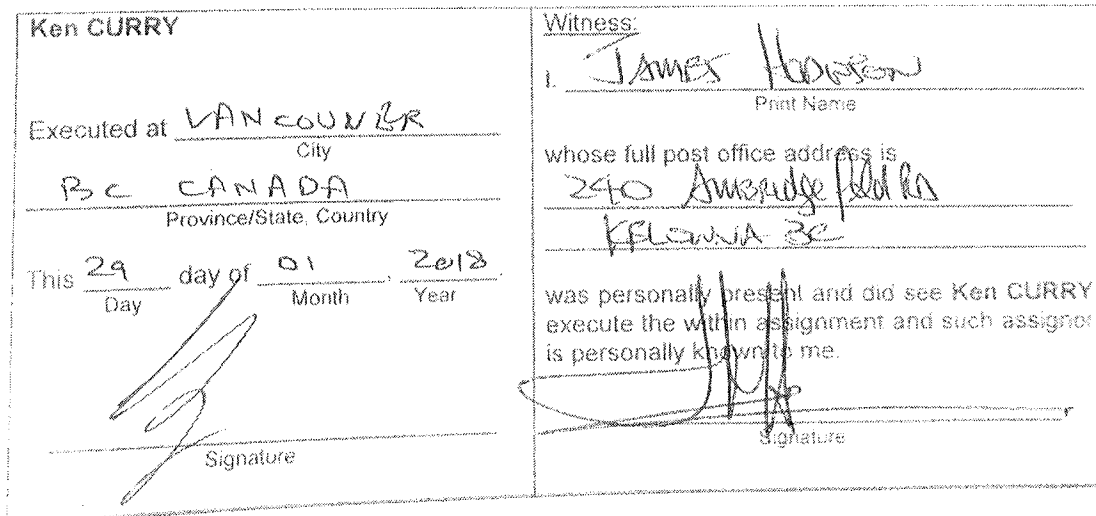 Ken CURRY
Executed at VANCOUVER
City
BC CANADA
Province/State, Country
This 29 day of 01, 2018.
Day Month Year
Signature
Witness:
I, JAMES
Print Name
whose full post office address is
240 Rd
KELOWNA BC
was personally present and did see Ken CURRY
execute the within assignment and such assignor
is personally known to me.
Signature